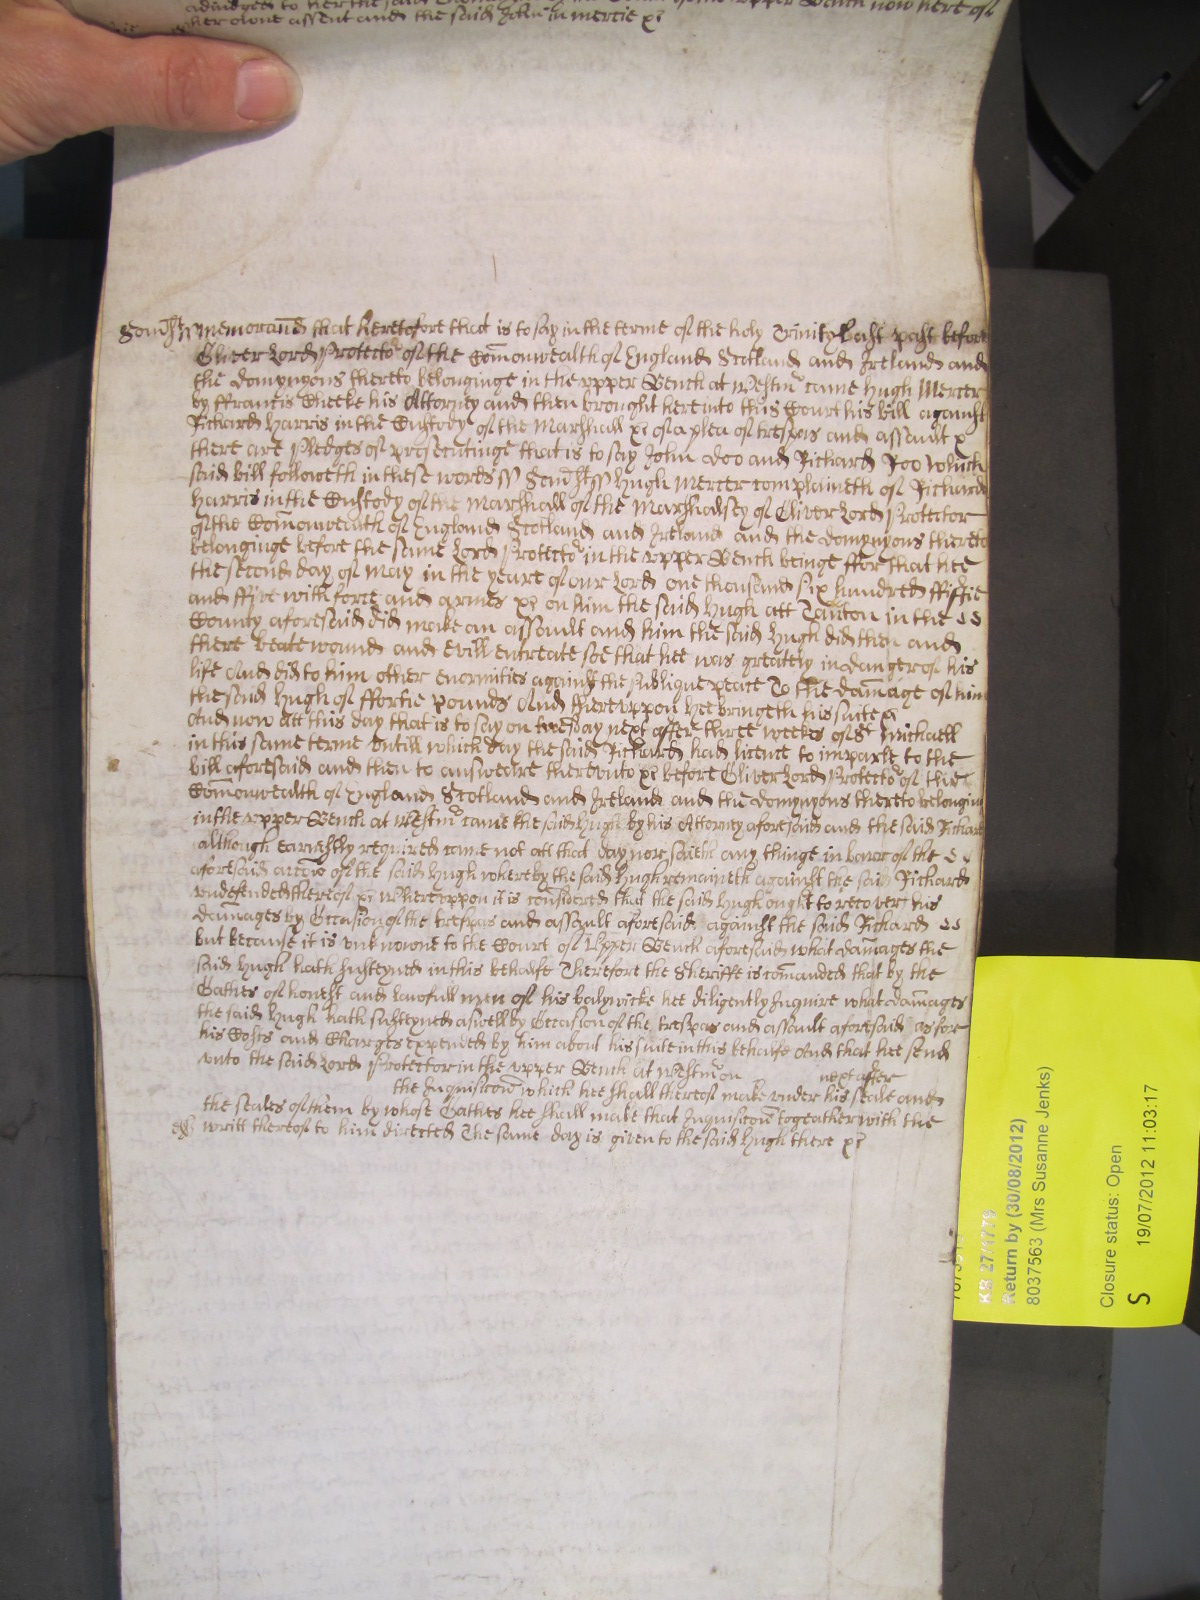 adiudged to her the said
her owne assent and the said John in mercie &c
Som̃st ss Memorand that heretofore that is to say in the terme of the holy Trinity Last past before
Oliver Lord Protector of the Com̃onwealth of England Scotland and Ireland and
the domynyons thereto belonginge in the vpper Bench at Westmr came Hugh Mercer
by ffrancis Cheeke his Attorney and then brought here into this Court his bill against
Richard Harris in the Custody of the Marshall &c of a plea of trespas and assault &c
there are Pledges of prosecutinge that is to say John Doo and Richard Roo which
said bill followeth in these words ss Som̃st ss Hugh Mercer complaineth of Richard
Harris in the Custody of the Marshall of the Marshalsey of Oliver Lord Protector
of the Com̃onwealth of England Scotland and Ireland and the domynyons thereto
belonginge before the same Lord Protector in the vpper Bench beinge ffor that hee
the second day of May in the yeare of our Lord one thousand six hundred ffiftie
and ffive with force and armes &c on him the said Hugh att Taunton in the
County aforesaid did make an assault and him the said Hugh did then and
there beate wound and evill entreate soe that hee was greately in danger of his
life And did to him other enormities against the Publique peace To the dam̃age of him
the said Hugh of ffortie Pounds And thereuppon hee bringeth his suite &c
And now att this day that is to say on tuesday next after three weekes of St Michaell
in this same terme vntill which day the said Richard had licence to imparle to the
bill aforesaid and then to answeare therevnto &c before Oliver Lord Protector of the
Com̃onwealth of England Scotland and Ireland and the domynyons thereto belonging
in the vpper Bench at Westmr came the said Hugh by his Attorney aforesaid and the said Richard
although earnestly required came not att that day nor saieth any thinge in barr of the
aforesaid acc̃on of the said Hugh whereby the said Hugh remaineth against the said Richard
vndefended thereof &c Whereuppon it is considered that the said Hugh ought to recover his
dam̃ages by Occasion of the trespas and assault aforesaid against the said Richard
but because it is vnknowne to the Court of Vpper Bench aforesaid what dam̃ages the
said Hugh hath susteyned in this behalfe Therefore the Sheriffe is com̃anded that by the
Oathes of honest and lawfull men of his bailywicke hee diligently Inquire what dam̃ages
the said Hugh hath susteyned aswell by Occasion of the trespas and assault aforesaid as for
his Costs and Charges expended by him about his suite in this behalfe And that hee send
vnto the said Lord Protector in the vpper Bench at Westmr on next after
the Inquisic̃on which hee shall thereof make vnder his seale and
the seales of them by whose Oathes hee shall make that Inquisic̃on togeather with the
writt thereof to him directed The same day is given to the said Hugh there &c
KB 27/1779
Return by (30/08/2012)
8037563 (Mrs Susanne Jenks)
Closure status: Open
S 19/07/2012 11:03:17